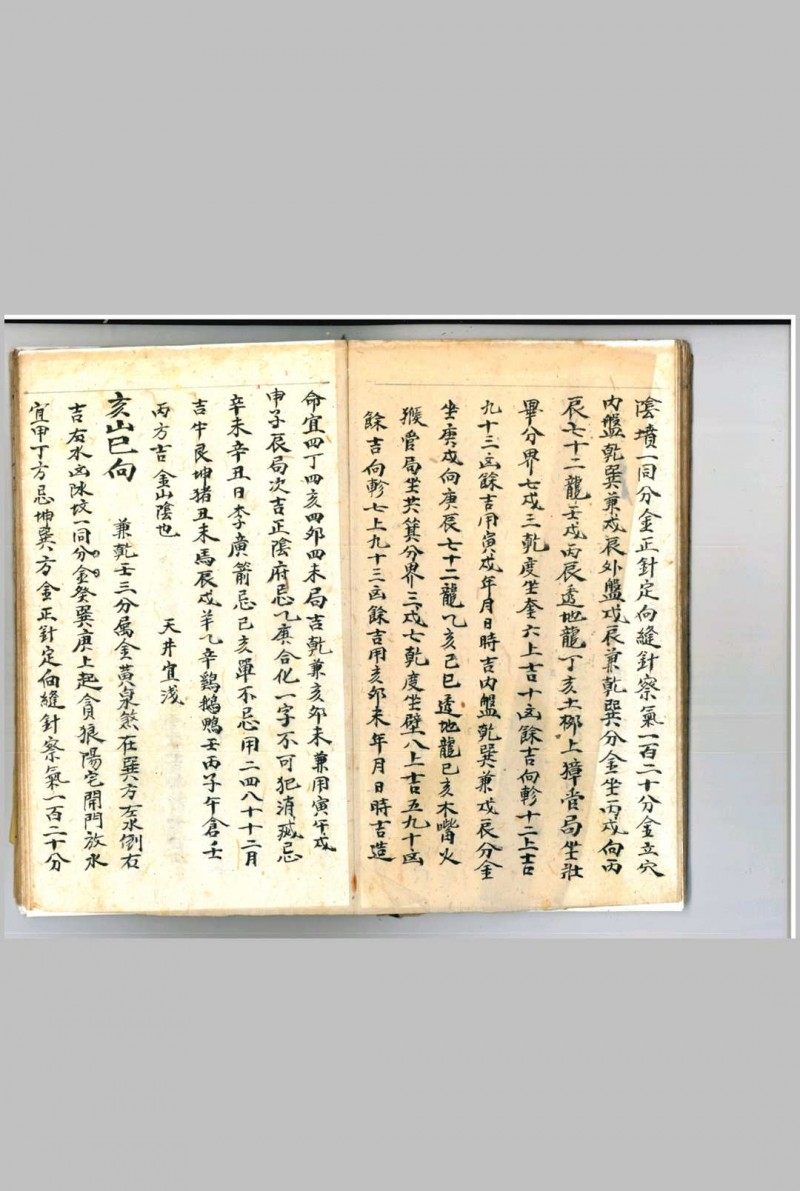 陰墳一同分金正針定向縫針察氣一百二十分金立穴
內盤乾巽兼戌辰外盤戌辰兼乾巽分金坐丙戌向丙
辰七十二龍壬戌丙辰透地龍丁亥土柳上獐管局坐壯
畢分界七戌三乾度坐奎六上吉十凶餘吉向軫十二上吉
九十三凶餘吉用寅戌年月日時吉內盤乾巽兼戌辰分金
坐庚戌向庚辰七十二龍乙亥己巳透地龍己亥木嘴火
猴管局坐共箕分界三戌七乾度坐壁八上吉五九十凶
餘吉向軫七上九十三凶餘吉用亥卯未年月日時吉造
命宜四丁四亥四卯四未局吉乾兼亥卯未兼用寅午戌
申子辰局次吉正陰府忌乙庚合化一字不可犯消滅忌
辛未辛丑日李廣箭忌己亥單不忌用二四八十十二月
吉牛艮坤猪丑未馬辰戌羊乙辛鷄鵝鴨壬丙子午倉壬
丙方吉 金山陰也 天井宜淺
亥山巳向 兼乾壬三分屬金黃泉煞在巽方左水倒右
吉右水凶陰墳一同分金癸巽庚上起貪狼陽宅開門放水
宜甲丁方忌坤巽方金正針定向縫針察氣一百二十分